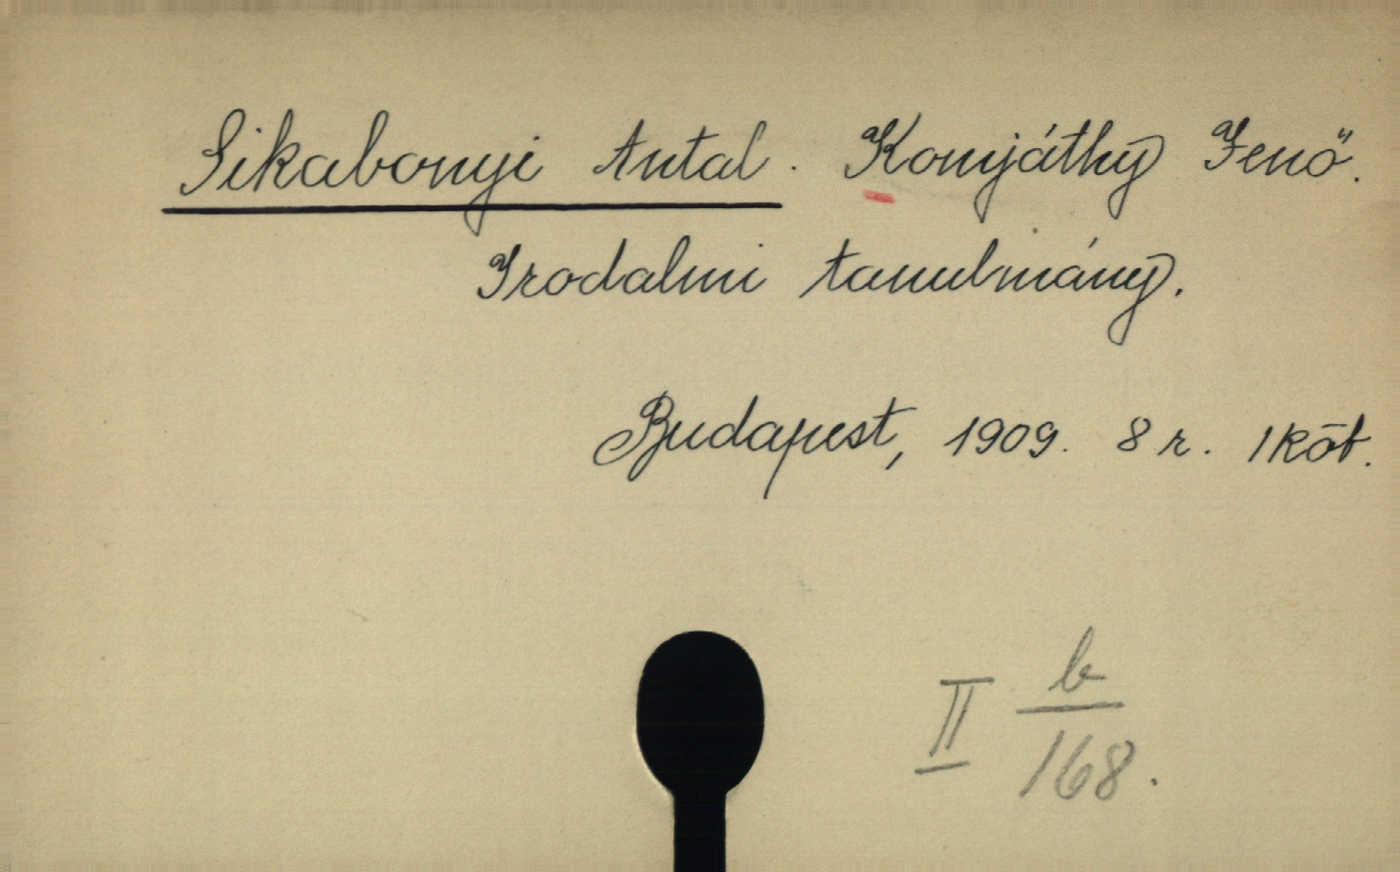 Sikabonyi Antal. Komjáthy Jenő.
Irodalmi tanulmány.
Budapest, 1909. 8 r. 1 köt.
II b/168.